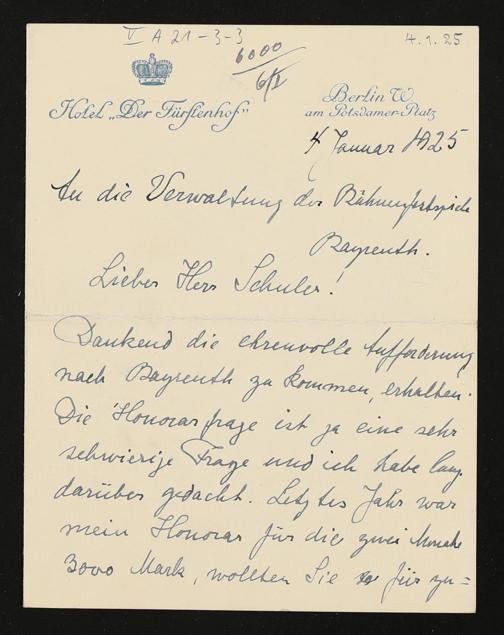 V A 21-3-3
4.1.25
6000
6/I
Hotel „Der Fürstenhof"
Berlin W.
am Potsdamer-Platz
4 Januar 1925
An die Verwaltung der Bühnenfestspiele
Bayreuth.
Lieber Herr Schuler!
Dankend die ehrenvolle Aufforderung
nach Bayreuth zu kommen, erhalten.
Die Honorarfrage ist ja eine sehr
schwierige Frage und ich habe lang
darüber gedacht. Letztes Jahr war
mein Honorar für die zwei Monate
3000 Mark, wollten Sie für zu=